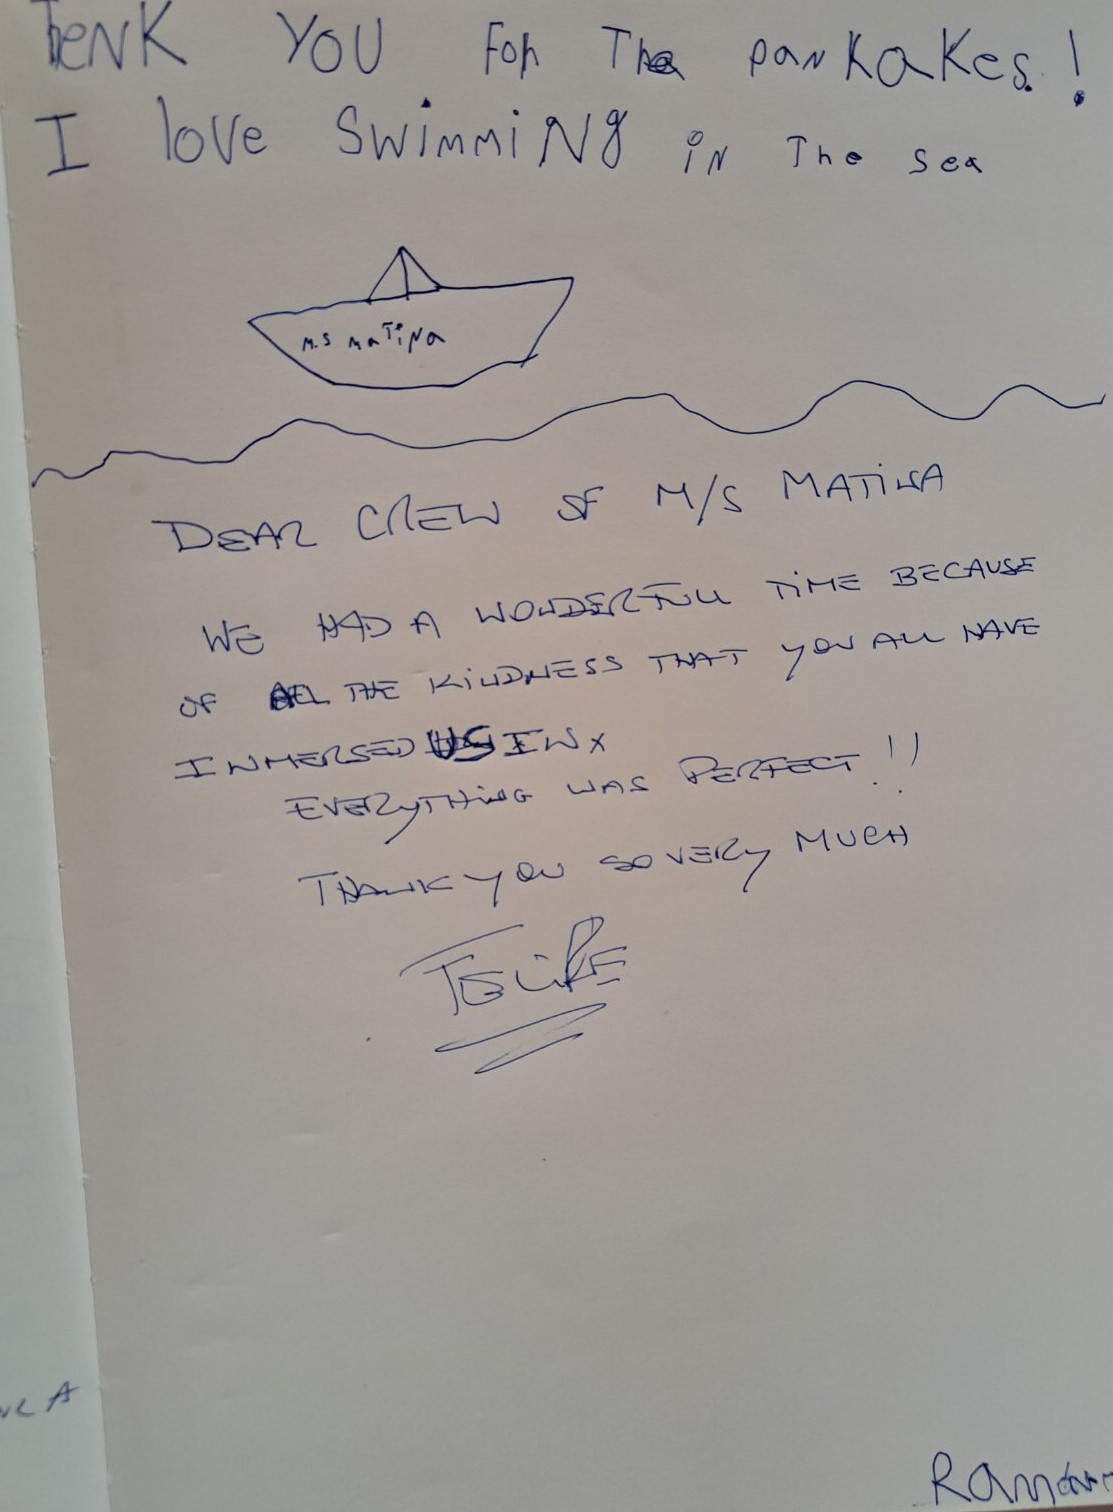 THENK YOU FOR The panKaKes!
I love SwimmiNg iN The sea
M.S MaTiNa
DEAR CREW OF M/S MATINA
WE HAD A WONDERFULL TIME BECAUSE
OF ALL THE KINDNESS THAT YOU ALL HAVE
INMERSED US IN
EVERYTHING WAS PERFECT!!
THANK YOU SO VERY MUCH
FELIPE